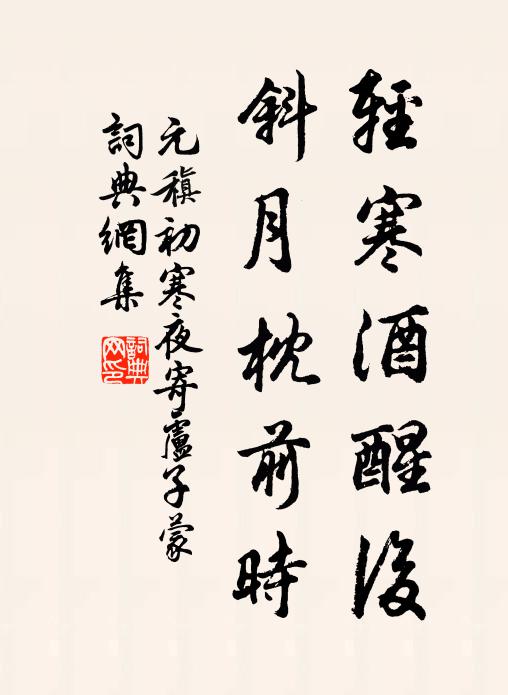 輕寒酒醒後
斜月枕前時
元稹初寒夜寄盧子蒙
詞典網集
詞典网印